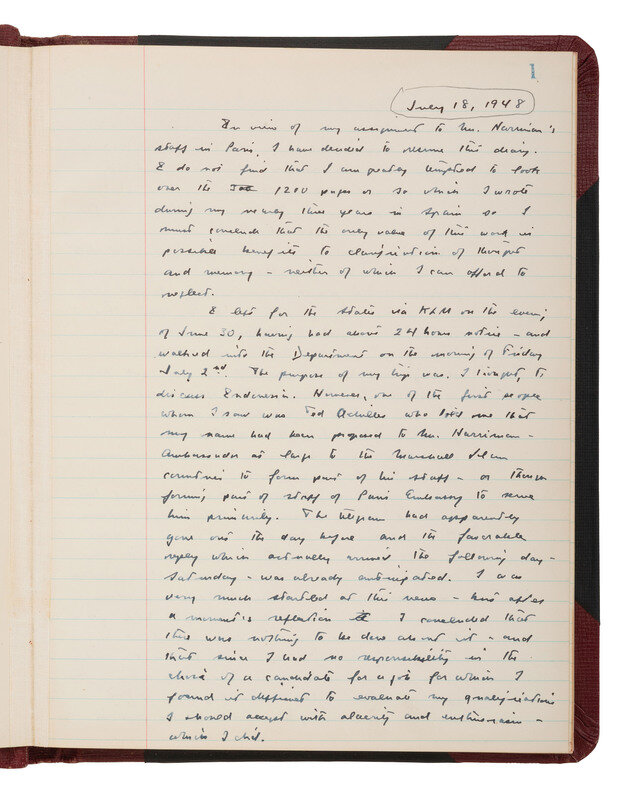 1
July 18, 1948
In view of my assignment to Mr. Harriman's
staff in Paris, I have decided to resume this diary.
I do not find that I am greatly tempted to look
over the 1200 pages or so which I wrote
during my nearly three years in Spain so I
must conclude that the only value of this work is
possible benefits to clarification of thought
and memory - neither of which I can afford to
neglect.
I left for the States via KLM on the evening
of June 30, having had about 24 hours notice - and
walked into the Department on the morning of Friday
July 2nd. The purpose of my trip was, I thought, to
discuss Indonesia. However, one of the first people
whom I saw was Ted Achilles who told me that
my name had been proposed to Mr. Harriman -
Ambassador at large to the Marshall Plan
countries to form part of his staff - or
forming part of staff of Paris Embassy to serve
him primarily. The telegram had apparently
gone out the day before and the favorable
reply which actually arrived the following day -
Saturday - was already anticipated. I was
very much startled at this news - but after
a moment's reflection I concluded that
there was nothing to be done about it - and
that since I had no responsibility in the
choice of a candidate for a job for which I
found it difficult to evaluate my qualifications
I should accept with alacrity and enthusiasm -
which I did.